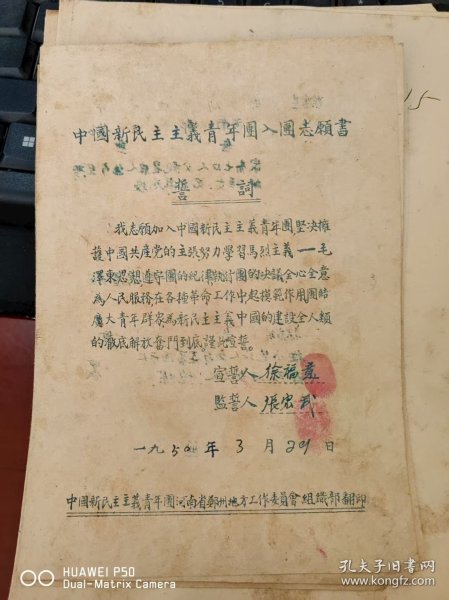 中國新民主主義青年團入團志願書
誓詞
我志願加入中國新民主主義青年團堅决擁
護中國共產党的主張努力學習馬烈主義——毛
澤東思想遵守團的紀律執行團的决議全心全意
為人民服務在各種革命工作中起模範作用團結
廣大青年群衆為新民主主義中國的建設全人類
的澈底解放奮鬥到底謹此宣誓。
宣誓人 徐福
監誓人 張宏武
一九五 年 3 月 29 日
中國新民主主義青年團河南省鄭州地方工作委員會組織部翻印
15
HUAWEI P50
Dual-Matrix Camera
孔夫子旧书网
kongfz.com